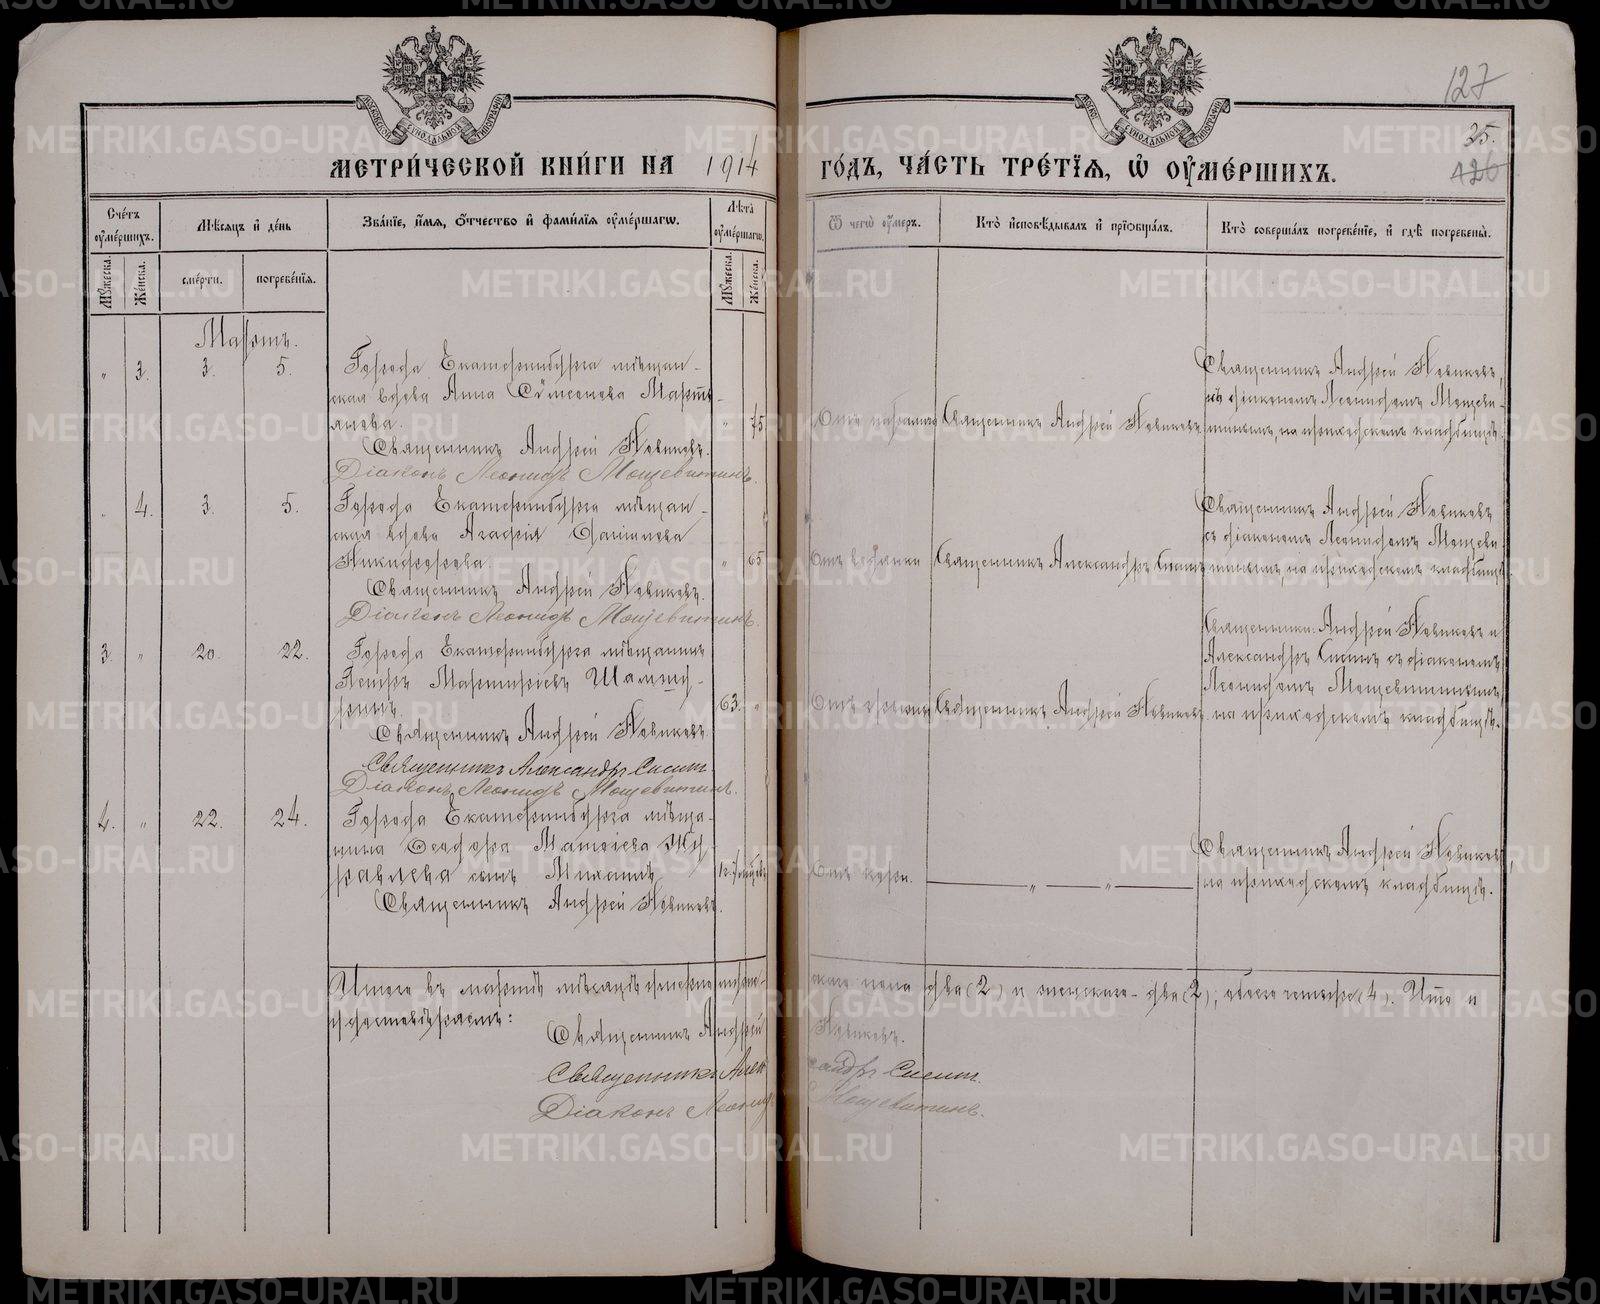 127
25.
126
МЕТРИ́ЧЕСКОЙ КНИ́ГИ НА 1914 ГО́ДЪ, ЧА́СТЬ ТРЕ́ТІЯ, Ѡ ОУМЕ́РШИХЪ.
МОСКОВСКОЙ СѴНОДАЛЬНОЙ ТИПОГРАФІИ
Сче́тъ оуме́ршихъ.
Мѣ́сяцъ и де́нь
Зва́ніе, и́мя, о́тчество и фами́лія оуме́ршагѡ.
Лѣ́та оуме́ршагѡ.
Ѿ чегѡ̀ оу́меръ.
Кто̀ исповѣ́дывалъ и прїѡбща́лъ.
Кто̀ соверша́лъ погребе́ніе, и гдѣ̀ погребены̀.
Мꙋ́жеска. Же́нска. сме́рти. погребе́нїя. Мꙋ́жеска. Же́нска.
Мартъ.
„ 3. 3. 5.
Города Екатеринбурга мѣщан-
ская вдова Анна Сѵмеонова Мартья-
нова.
Священникъ Андрей Новиковъ.
Діаконъ Леонидъ Мощевитинъ.
„ 75
Священникъ Андрей Новиковъ
Священникъ Андрей Новиковъ,
съ діакономъ Леонидомъ Мощеви-
тинымъ, на приходскомъ кладбищѣ.
„ 4. 3. 5.
Города Екатеринбурга мѣщан-
ская вдова Агафія Даніилова
Никифорова.
Священникъ Андрей Новиковъ.
Діаконъ Леонидъ Мощевитинъ.
„ 65
Отъ водянки
Священникъ Александръ Сисинъ
Священникъ Андрей Новиковъ
съ діакономъ Леонидомъ Мощеви-
тинымъ, на приходскомъ кладбищѣ
3. „ 20. 22.
Города Екатеринбурга мѣщанинъ
Петръ
Священникъ Андрей Новиковъ.
Священникъ Александръ Сисинъ.
Діаконъ Леонидъ Мощевитинъ.
63. „
Священникъ Андрей Новиковъ
Священники: Андрей Новиковъ и
Александръ Сисинъ съ діакономъ
Леонидомъ Мощевитинымъ,
на приходскомъ кладбищѣ.
4. „ 22. 24.
Города Екатеринбурга мѣща-
нина Ѳеодора Матѳіева Жу-
равлева сынъ Михаилъ
Священникъ Андрей Новиковъ.
Отъ кори.
„ „
Священникъ Андрей Новиковъ
на приходскомъ кладбищѣ.
Итого въ мартѣ мѣсяцѣ умерло мужескаго пола два (2) и женскаго - два (2), обоего четверо (4). Что и
удостовѣряемъ:
Священникъ Андрей Новиковъ.
Священникъ Александръ Сисинъ.
Діаконъ Леонидъ Мощевитинъ.
METRIKI.GASO-URAL.RU